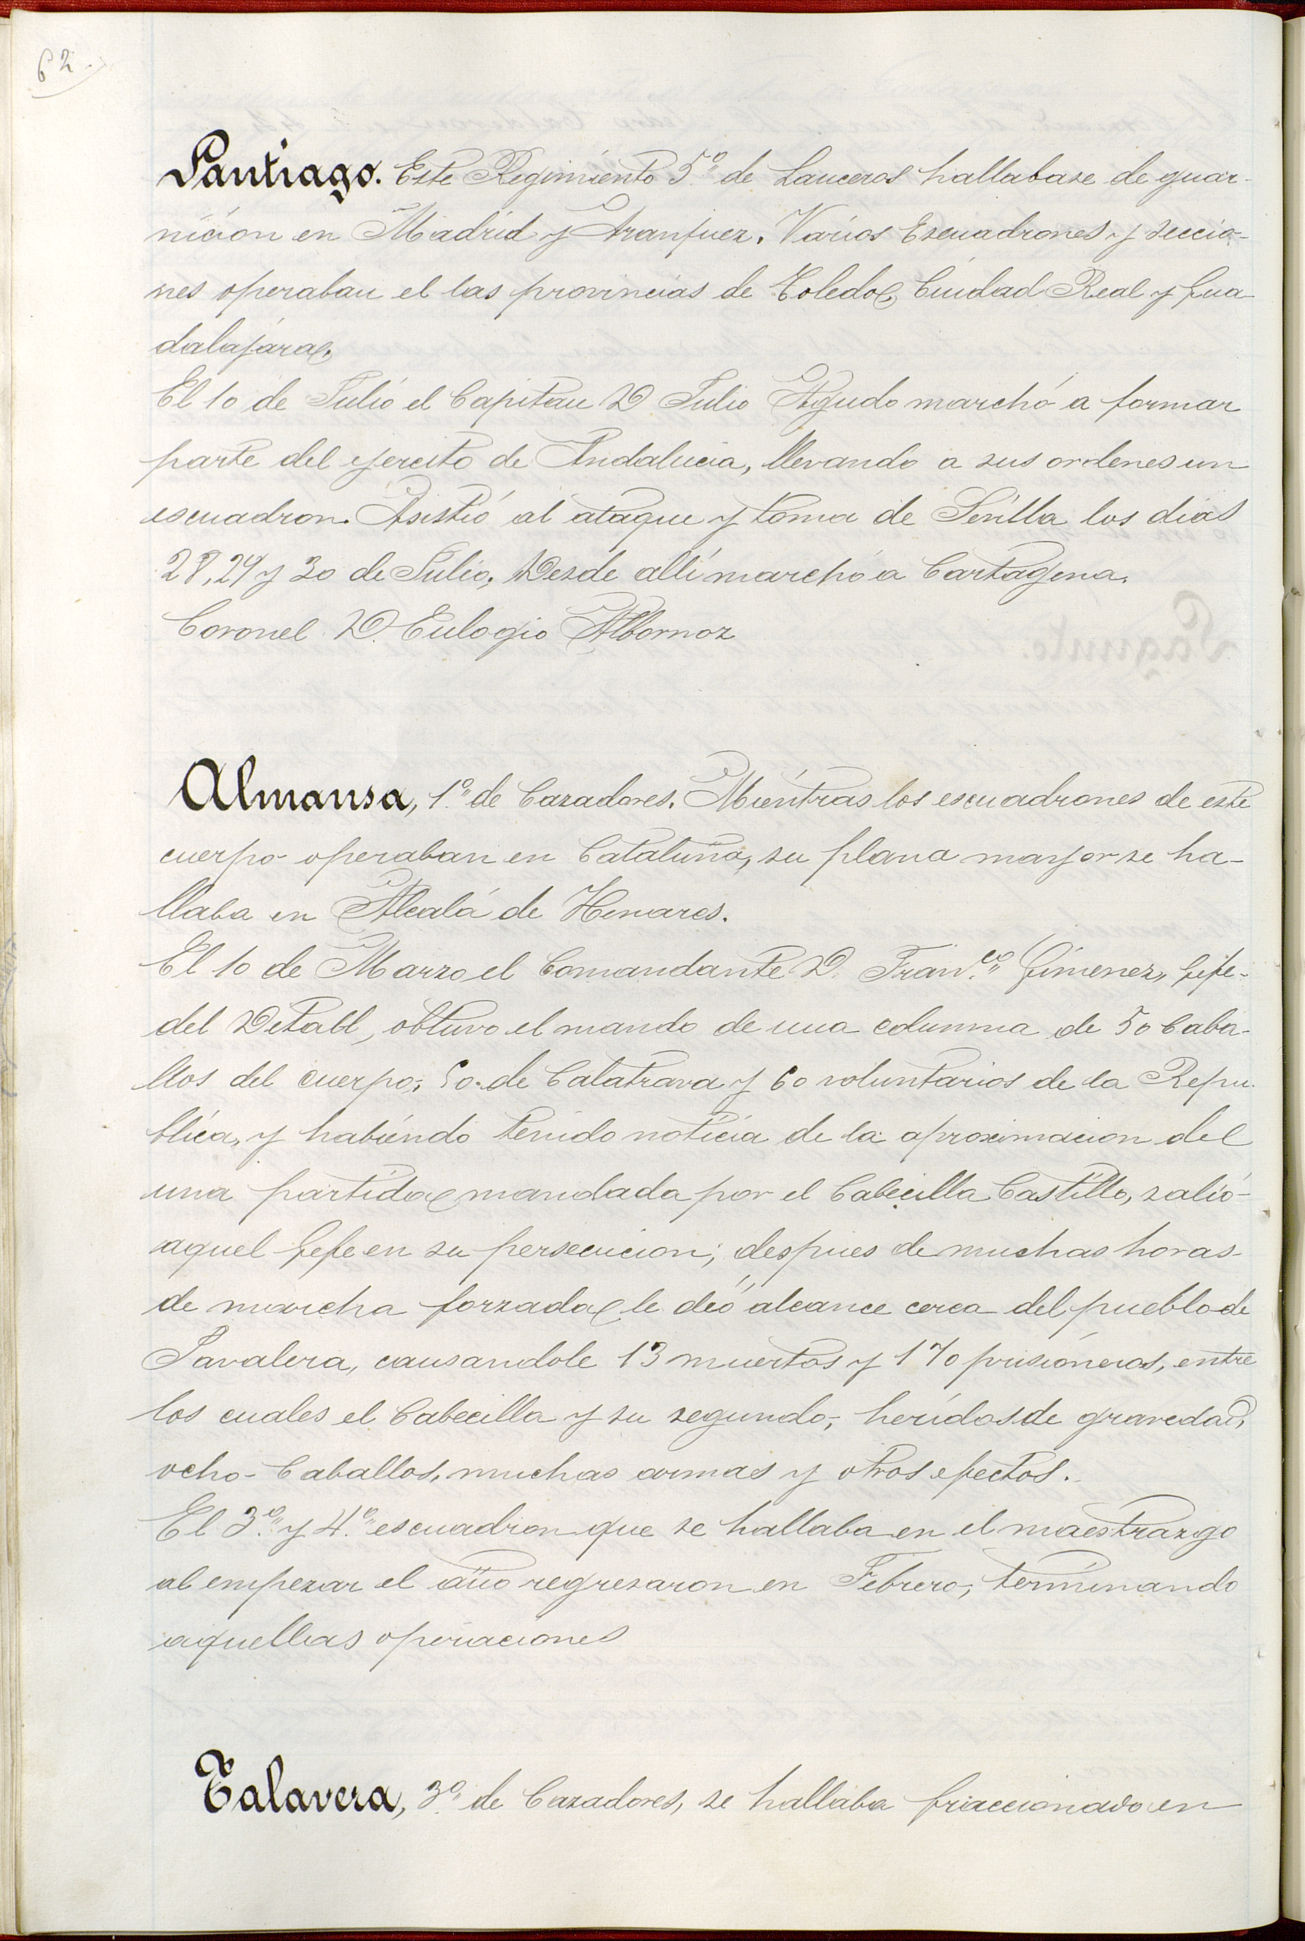 62.
Santiago. Este Regimiento 5º de Lanceros hallabase de guar-
nicion en Madrid y Aranjuez. Varios Escuadrones y seccio-
nes operaban el las provincias de Toledo, Ciudad Real y Gua
dalajara.
El 10 de Julio el Capitan D Julio Agudo marchó a formar
parte del ejercito de Andalucia, llevando a sus ordenes un
escuadron. Asistió al ataque y toma de Sevilla los dias
28, 29 y 30 de Julio. Desde allí marchó a Cartagena.
Coronel D. Eulogio Albornoz
Almansa, 1º de Cazadores. Mientras los escuadrones de este
cuerpo operaban en Cataluña, su plana mayor se ha-
llaba en Alcalá de Henares.
El 10 de Marzo el Comandante D. Franco Gimenez, Gefe-
del Detall, obtuvo el mando de una columna de 50 Caba-
llos del cuerpo, 50 de Calatrava y 60 voluntarios de la Repu-
blica, y habiendo tenido noticia de la aproximacion del
una partida mandada por el Cabecilla Castillo, salió-
aquel Gefe en su persecucion; despues de muchas horas-
de marcha forzada le dió alcance cerca del pueblo de
causandole 13 muertos y 170 prisioneros, entre
los cuales el Cabecilla y su segundo, heridos de gravedad,
ocho Caballos, muchas armas y otros efectos.
El 3º y 4º escuadron que se hallaba en el maestrazgo
al empezar el año regresaron en Febrero, terminando
aquellas operaciones
Talavera, 3º de Cazadores, se hallaba fraccionado en